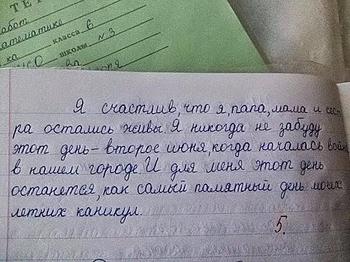 ТЕТ
работ
математике
ка класса 6
школы №3
Я счастлив, что я, папа, мама и сес-
ра остались живы. Я никогда не забуду
этот день - второе июня, когда началась вой
в нашем городе. И для меня этот день
останется, как самый памятный день моих
летних каникул.
5.